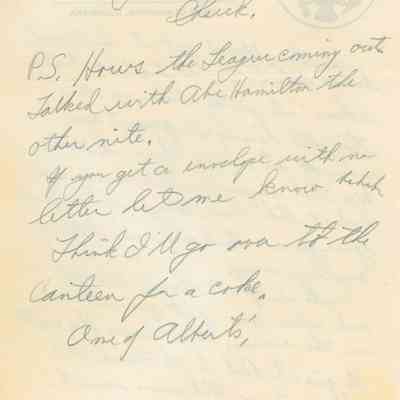 Chuck.
P.S. Hows the League coming out.
Talked with Abe Hamilton the
other nite.
If you get a envelope with no
letter let me know heheh
Think I'll go over to the
Canteen for a coke.
One of Alberts',